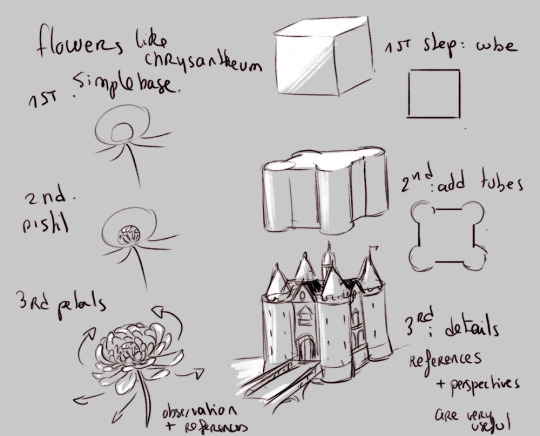 flowers like
chrysantheum
1ST . Simple base.
2nd.
pistil
3rd petals
observation
+ references
1ST step : cube
2nd
: add tubes
3rd
: details
references
+ perspectives
are very
useful